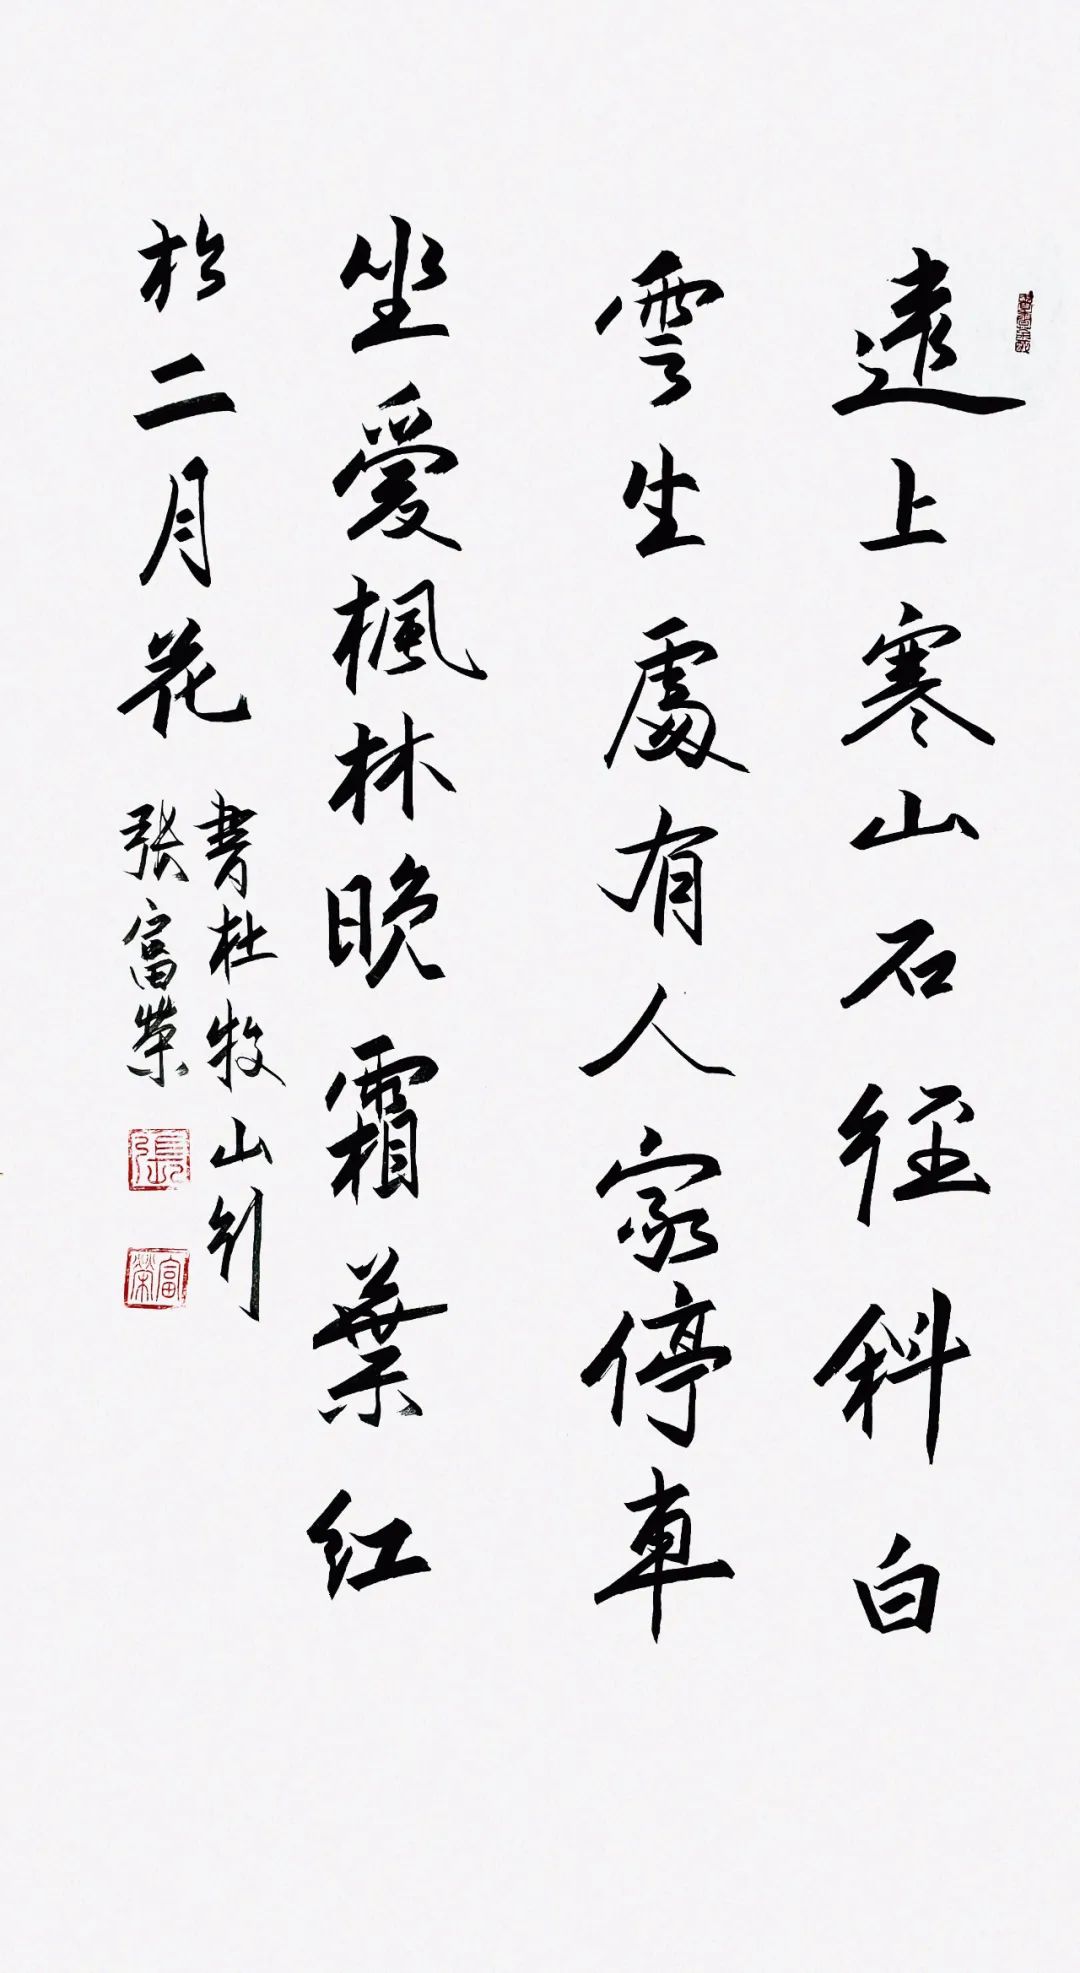 遠上寒山石徑斜白
雲生處有人家停車
坐愛楓林晚霜葉紅
於二月花
書杜牧山行
張富榮
張
富榮